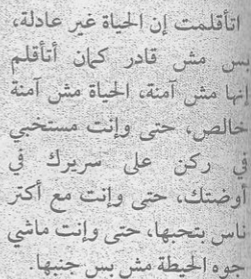 اتأقلمت إن الحياة غير عادلة،
بس مش قادر كمان أتأقلم
إنها مش آمنة، الحياة مش آمنة
خالص، حتى وإنت مستخبي
في ركن على سريرك في
أوضتك، حتى وإنت مع أكتر
ناس بتحبها، حتى وإنت ماشي
جوه الحيطة مش بس جنبها.